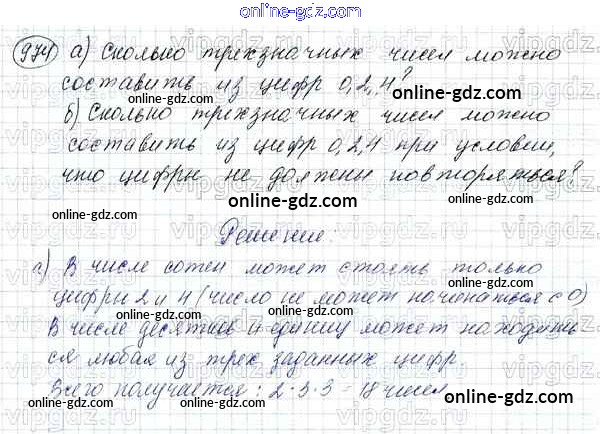 online-gdz.com
974 а) Сколько трехзначных чисел можно
составить из цифр 0,2,4?
online-gdz.com
б) Сколько трехзначных чисел можно
online-gdz.com
составить из цифр 0,2,4 при условии,
online-gdz.com
что цифры не должны повторяться?
online-gdz.com
online-gdz.com
Решение.
online-gdz.com
а) В числе сотен может стоять только
цифры 2 и 4 (число не может начинаться с 0)
online-gdz.com
online-gdz.com
В числе десятков и единиц может находить
ся любая из трех заданных цифр.
online-gdz.com
Всего получается: 2·3·3 = 18 чисел
online-gdz.com
online-gdz.com